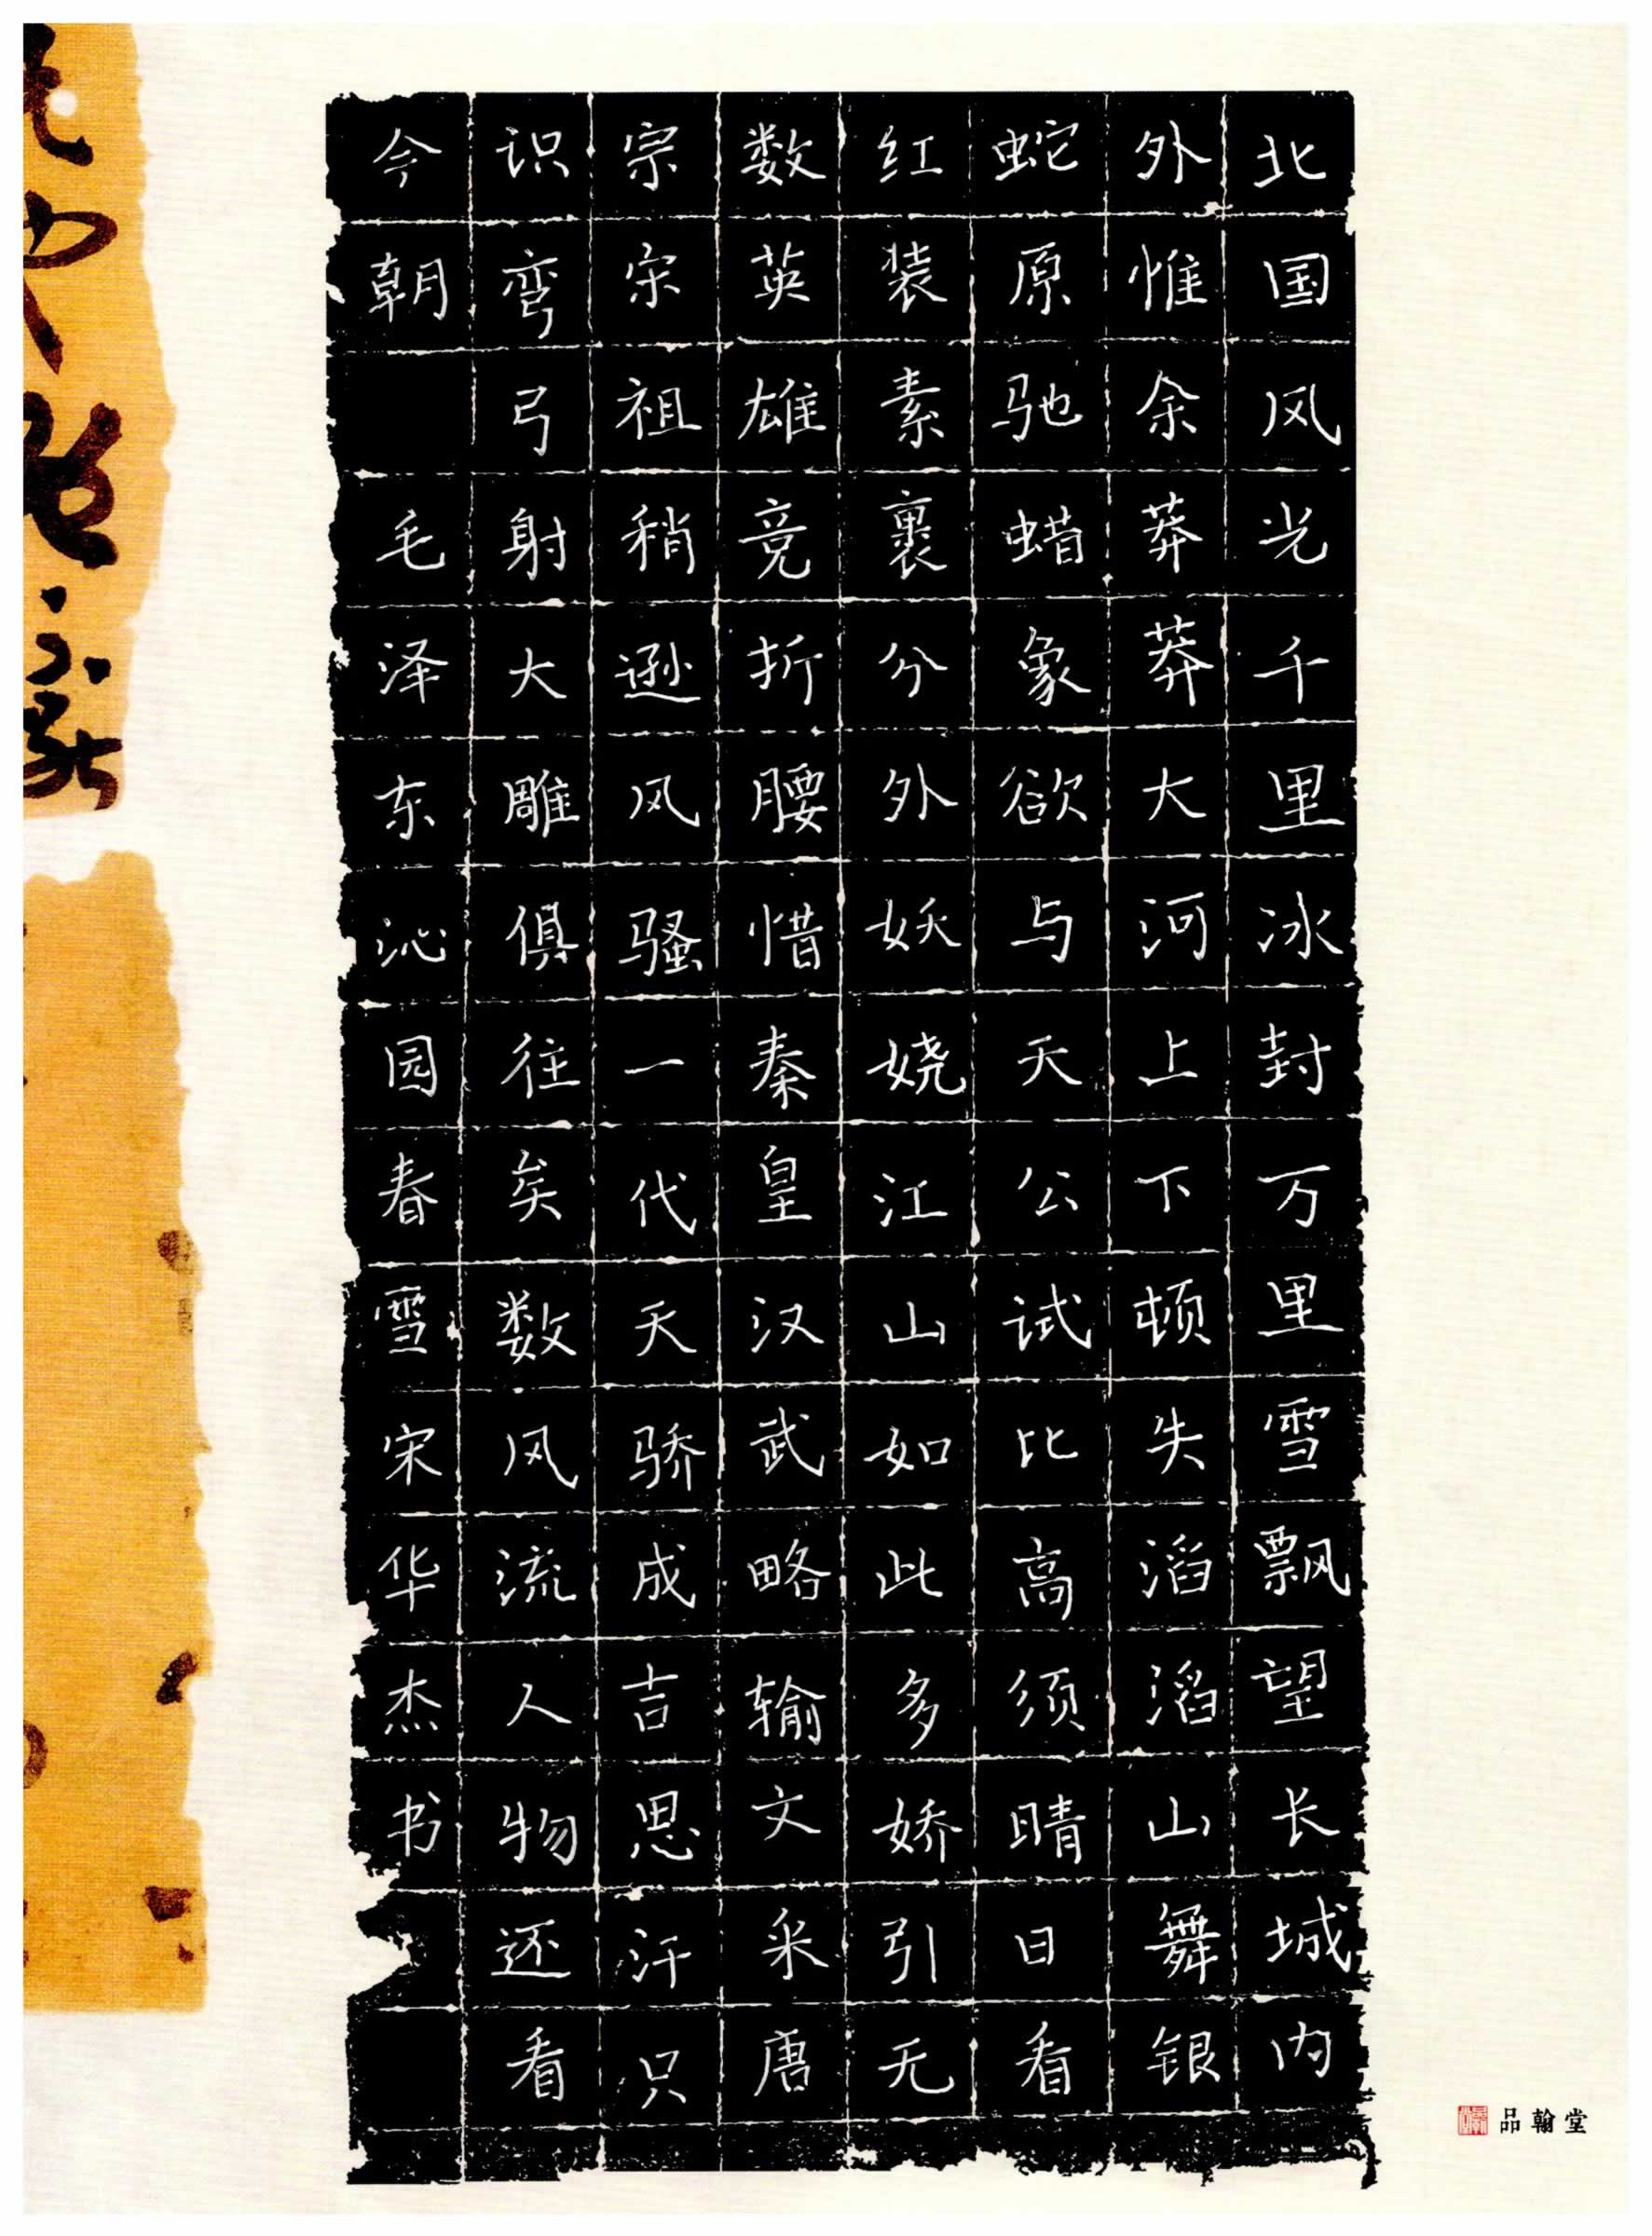 北国风光千里冰封万里雪飘望长城内
外惟余莽莽大河上下顿失滔滔山舞银
蛇原驰蜡象欲与天公试比高须晴日看
红装素裹分外妖娆江山如此多娇引无
数英雄竞折腰惜秦皇汉武略输文采唐
宗宋祖稍逊风骚一代天骄成吉思汗只
识弯弓射大雕俱往矣数风流人物还看
今朝 毛泽东沁园春雪宋华杰书
品翰堂